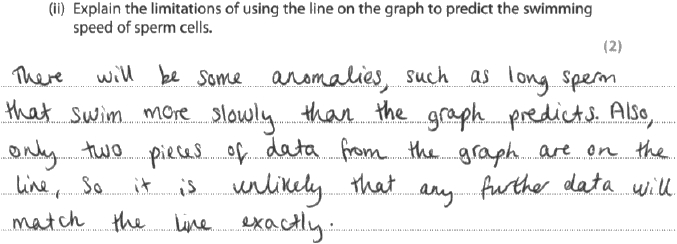 (ii) Explain the limitations of using the line on the graph to predict the swimming
speed of sperm cells.
(2)
There will be some anomalies, such as long sperm
that swim more slowly than the graph predicts. Also,
only two pieces of data from the graph are on the
line, so it is unlikely that any further data will
match the line exactly.